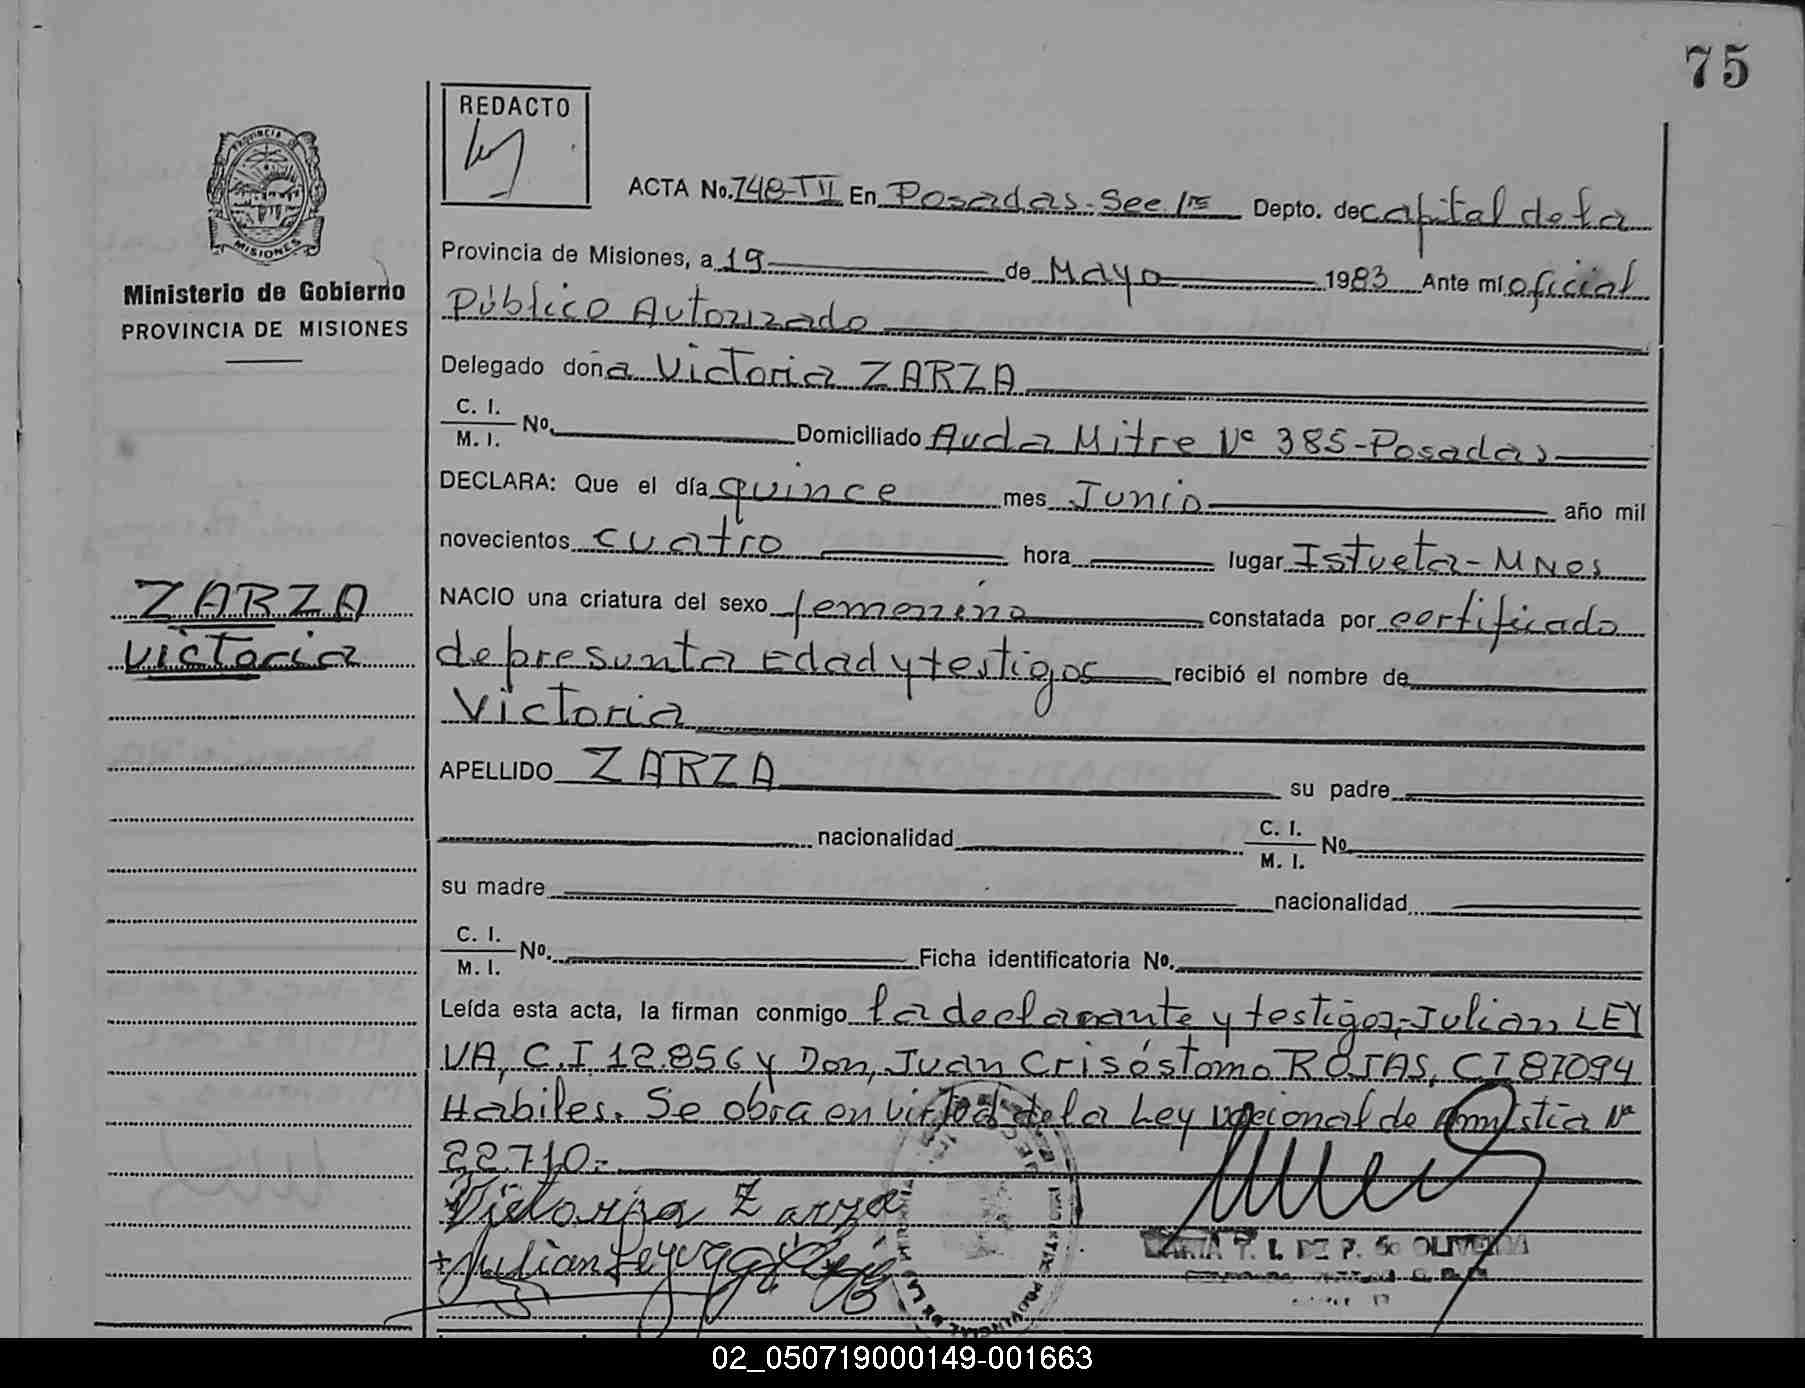 75
REDACTO
PROVINCIA
MISIONES
Ministerio de Gobierno
PROVINCIA DE MISIONES
ACTA No. 748-TII En Posadas-See 1ra Depto. de capital de la
Provincia de Misiones, a 19 de Mayo 1983 Ante mí oficial
Público Autorizado
Delegado doña Victoria ZARZA
C. I.
M. I. No. Domiciliado Avda Mitre Nº 385-Posadas
DECLARA: Que el día quince mes Junio año mil
novecientos cuatro hora lugar Istueta-MNes
ZARZA
Victoria
NACIO una criatura del sexo femenino constatada por certificado
de presunta Edad y testigos recibió el nombre de
Victoria
APELLIDO ZARZA su padre
nacionalidad C. I.
M. I. No
su madre nacionalidad
C. I.
M. I. No. Ficha identificatoria No.
Leída esta acta, la firman conmigo la declarante y testigos, Julian LEY
VA, C.I 12.856 y Don, Juan Crisóstomo ROJAS, CI 87094
Habiles. Se obra en virtud de la Ley nacional de amnistia Nº
22.710.-
Victoria Zarza
Julian Leyva
02_050719000149-001663